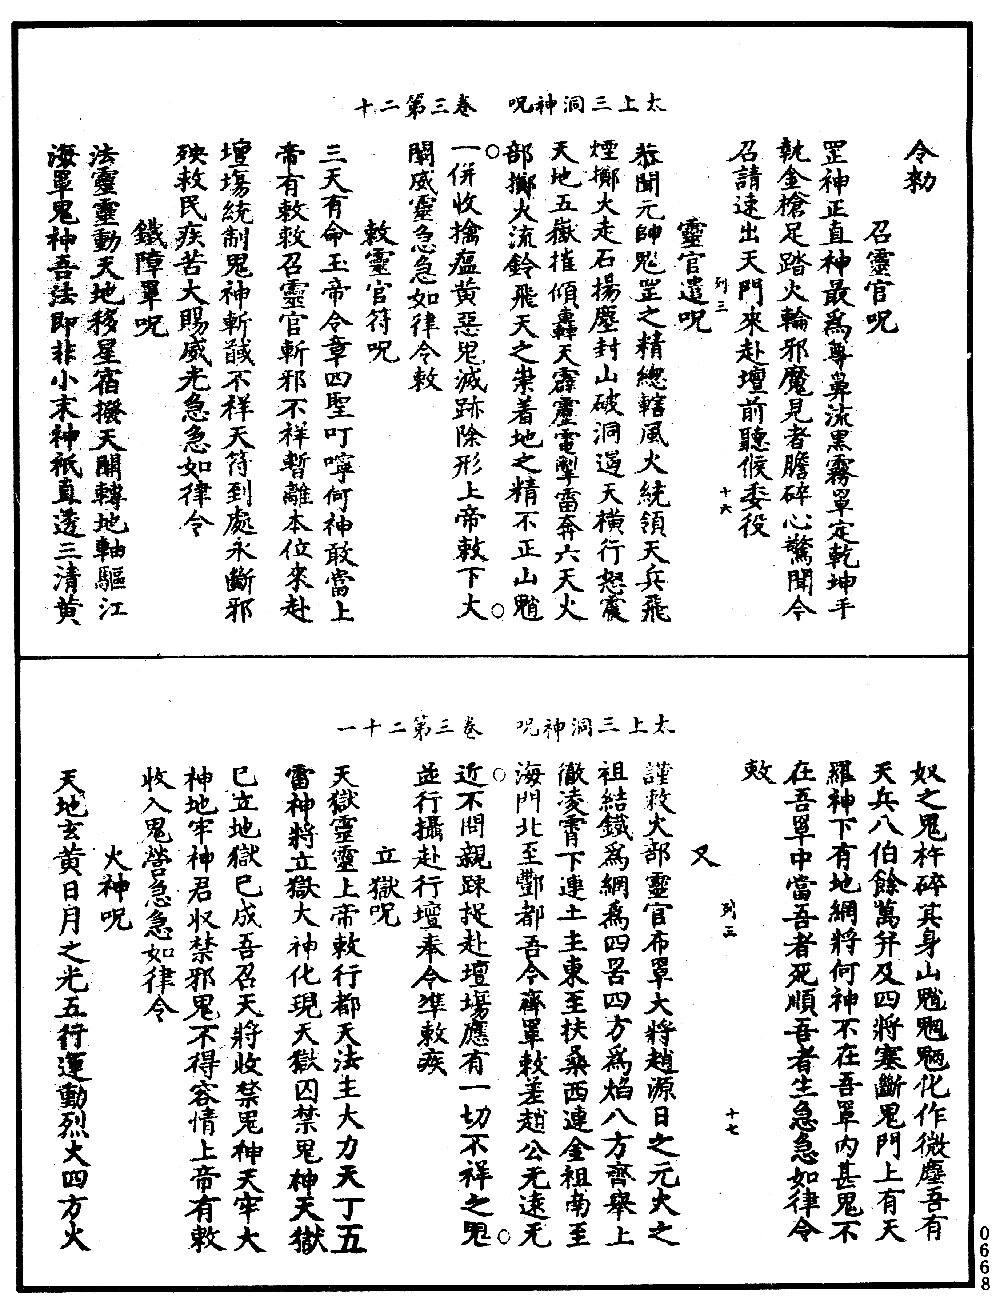 太上三洞神呪　卷三第二十
令勑
召靈官呪
罡神正直神最爲尊鼻流黑霧罩定乾坤手
執金槍足踏火輪邪魔見者膽碎心驚聞令
召請速出天門來赴壇前聽候委役
列三　十六
靈官遣呪
恭聞元帥鬼罡之精總轄風火統領天兵飛
煙擲火走石揚塵封山破洞遏天橫行怒震
天地五嶽摧傾轟天霹靂電掣雷奔六天火
部擲火流鈴飛天之祟着地之精不正山魈
一併收擒瘟黃惡鬼滅跡除形上帝敕下大
闡威靈急急如律令敕
敕靈官符呪
三天有命玉帝令章四聖叮嚀何神敢當上
帝有敕敕召靈官斬邪不祥暫離本位來赴
壇塲統制鬼神斬馘不祥天符到處永斷邪
殃救民疾苦大賜威光急急如律令
鐵障罩呪
法靈靈動天地移星宿撥天關轉地軸驅江
海罩鬼神吾法即非小末神祇直透三清黃
太上三洞神呪　卷三第二十一
奴之鬼杵碎其身山魈魍魎化作微塵吾有
天兵八伯餘萬并及四將塞斷鬼門上有天
羅神下有地網將何神不在吾罩内甚鬼不
在吾罩中當吾者死順吾者生急急如律令
敕
又
列三　十七
謹敕火部靈官布罩大將趙源日之元火之
祖結鐵爲網爲四罟四方爲焰八方齊舉上
徹凌霄下連土主東至扶桑西連金祖南至
海門北至酆都吾令齊罩敕差趙公无遠无
近不問親踈捉赴壇塲應有一切不祥之鬼
並行攝赴行壇奉令準敕疾
立獄呪
天獄靈靈上帝敕行都天法主大力天丁五
雷神將立獄大神化現天獄囚禁鬼神天獄
已立地獄已成吾召天將收禁鬼神天牢大
神地牢神君収禁邪鬼不得容情上帝有敕
收入鬼營急急如律令
火神呪
天地玄黃日月之光五行運動烈火四方火
0668